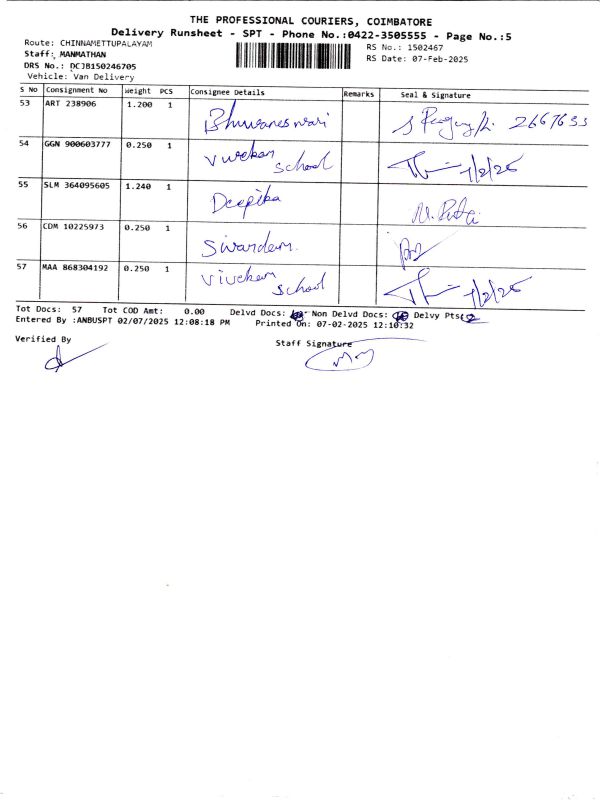 THE PROFESSIONAL COURIERS, COIMBATORE
Delivery Runsheet - SPT - Phone No.:0422-3505555 - Page No.:5
Route: CHINNAMETTUPALAYAM
RS No.: 1502467
Staff: MANMATHAN
RS Date: 07-Feb-2025
DRS No.: DCJB150246705
Vehicle: Van Delivery
S No Consignment No Weight PCS Consignee Details Remarks Seal & Signature
53 ART 238906 1.200 1 Bhuvaneswari 2667633
54 GGN 900603777 0.250 1 school
55 SLM 364095605 1.240 1 Deepika
56 CDM 10225973 0.250 1
57 MAA 868304192 0.250 1 Vivekam school
Tot Docs: 57 Tot COD Amt: 0.00 Delvd Docs: Non Delvd Docs: Delvy Pts:
Entered By :ANBUSPT 02/07/2025 12:08:18 PM Printed On: 07-02-2025 12:10:32
Verified By
Staff Signature